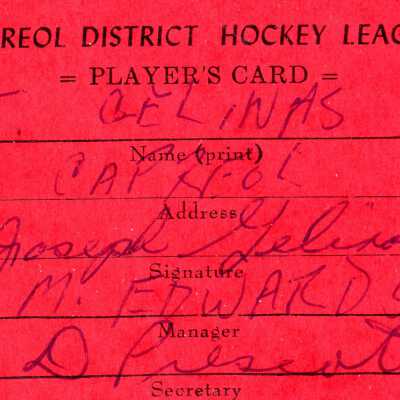 REOL DISTRICT HOCKEY LEAG
= PLAYER'S CARD =
GÉLINAS
Name (print)
CAPREOL
Address
Joseph Gelinas
Signature
M. EDWARDS
Manager
D Prescott
Secretary